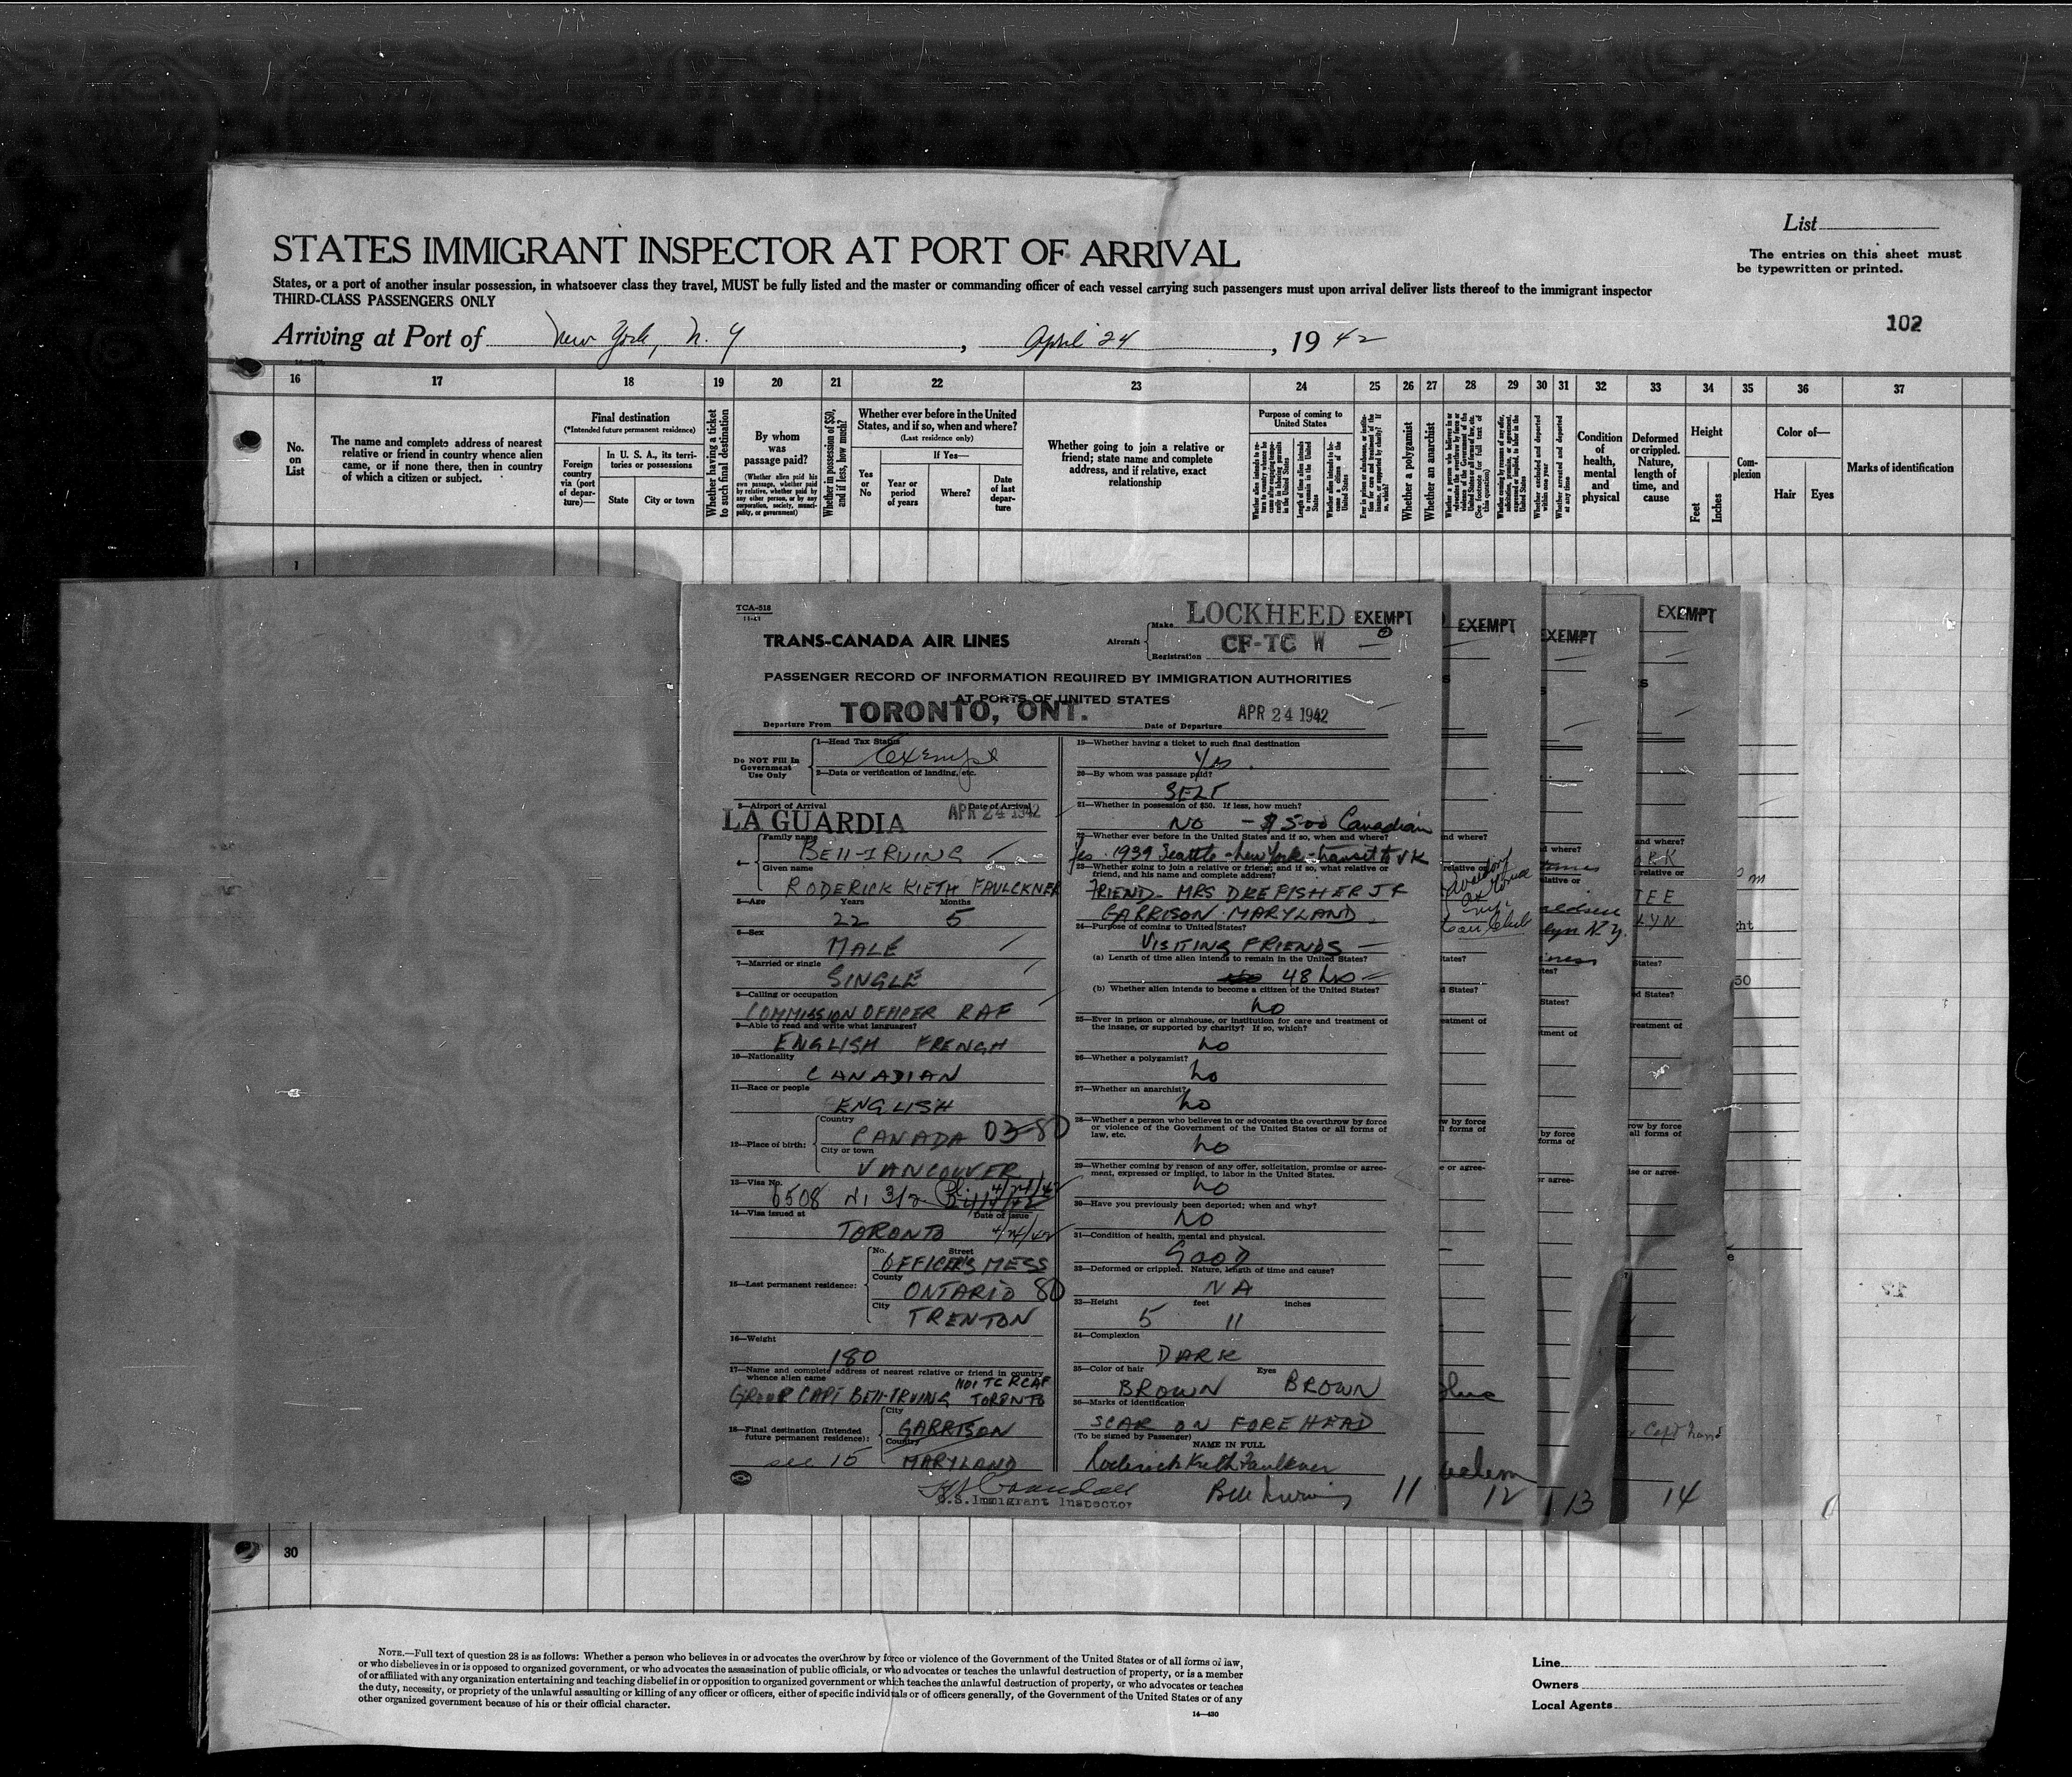 List
STATES IMMIGRANT INSPECTOR AT PORT OF ARRIVAL
The entries on this sheet must
be typewritten or printed.
States, or a port of another insular possession, in whatsoever class they travel, MUST be fully listed and the master or commanding officer of each vessel carrying such passengers must upon arrival deliver lists thereof to the immigrant inspector
THIRD-CLASS PASSENGERS ONLY
102
Arriving at Port of New York, N. Y, April 24, 1942
16 17 18 19 20 21 22 23 24 25 26 27 28 29 30 31 32 33 34 35 36 37
No.
on
List
The name and complete address of nearest
relative or friend in country whence alien
came, or if none there, then in country
of which a citizen or subject.
Final destination
(*Intended future permanent residence)
Foreign
country
via (port
of depar-
ture)—
In U. S. A., its terri-
tories or possessions
State
City or town
Whether having a ticket
to such final destination
By whom
was
passage paid?
(Whether alien paid his
own passage, whether paid
by relative, whether paid by
any other person, or by any
corporation, society, munici-
pality, or government)
Whether in possession of $50,
and if less, how much?
Whether ever before in the United
States, and if so, when and where?
(Last residence only)
Yes
or
No
If Yes—
Year or
period
of years
Where?
Date
of last
depar-
ture
Whether going to join a relative or
friend; state name and complete
address, and if relative, exact
relationship
Purpose of coming to
United States
Whether a polygamist
Whether an anarchist
Condition
of
health,
mental
and
physical
Deformed
or crippled.
Nature,
length of
time, and
cause
Height
Feet
Inches
Com-
plexion
Color of—
Hair
Eyes
Marks of identification
1
TCA-518
11-41
TRANS-CANADA AIR LINES
Aircraft
Make LOCKHEED EXEMPT
Registration CF-TC W
PASSENGER RECORD OF INFORMATION REQUIRED BY IMMIGRATION AUTHORITIES
AT PORTS OF UNITED STATES
Departure From TORONTO, ONT.
Date of Departure APR 24 1942
Do NOT Fill In
Government
Use Only
1—Head Tax Status
Exempt
2—Data or verification of landing, etc.
3—Airport of Arrival Date of Arrival
LA GUARDIA APR 24 1942
4—
Family name
BELL-IRVING
Given name
RODERICK KIETH FAULCKNER
5—Age Years Months
22 5
6—Sex
MALE
7—Married or single
SINGLE
8—Calling or occupation
COMMISSION OFFICER RAF
9—Able to read and write what languages?
ENGLISH FRENCH
10—Nationality
CANADIAN
11—Race or people
ENGLISH
12—Place of birth:
Country
CANADA 03-80
City or town
VANCOUVER
13—Visa No.
6508
14—Visa issued at Date of Issue
TORONTO 4/24/42
15—Last permanent residence:
No. Street
OFFICERS MESS
County
ONTARIO 80
City
TRENTON
16—Weight
180
17—Name and complete address of nearest relative or friend in country
whence alien came
NO1 TC RCAF
GROUP CAPT BELL-IRVING TORONTO
18—Final destination (Intended
future permanent residence):
City
GARRISON
Country
MARYLAND
see 15
U.S. Immigrant Inspector
19—Whether having a ticket to such final destination
Yes
20—By whom was passage paid?
SELF
21—Whether in possession of $50. If less, how much?
NO - $5.00 Canadian
22—Whether ever before in the United States and if so, when and where?
Yes. 1939 Seattle - New York - transit to UK
23—Whether going to join a relative or friend; and if so, what relative or
friend, and his name and complete address?
FRIEND. MRS DREFISHER JR
GARRISON MARYLAND.
24—Purpose of coming to United States?
VISITING FRIENDS
(a) Length of time alien intends to remain in the United States?
48 hrs
(b) Whether alien intends to become a citizen of the United States?
no
25—Ever in prison or almshouse, or institution for care and treatment of
the insane, or supported by charity? If so, which?
no
26—Whether a polygamist?
no
27—Whether an anarchist?
no
28—Whether a person who believes in or advocates the overthrow by force
or violence of the Government of the United States or all forms of
law, etc.
no
29—Whether coming by reason of any offer, solicitation, promise or agree-
ment, expressed or implied, to labor in the United States.
no
30—Have you previously been deported; when and why?
no
31—Condition of health, mental and physical.
GOOD
32—Deformed or crippled. Nature, length of time and cause?
NA
33—Height feet inches
5 11
34—Complexion
DARK
35—Color of hair Eyes
BROWN BROWN
36—Marks of identification
SCAR ON FOREHEAD
(To be signed by Passenger)
NAME IN FULL
Roderick Kieth Faulkner
Bell Irving
11
EXEMPT
12
EXEMPT
13
EXEMPT
14
30
NOTE.—Full text of question 28 is as follows: Whether a person who believes in or advocates the overthrow by force or violence of the Government of the United States or of all forms of law,
or who disbelieves in or is opposed to organized government, or who advocates the assassination of public officials, or who advocates or teaches the unlawful destruction of property, or is a member
of or affiliated with any organization entertaining and teaching disbelief in or opposition to organized government or which teaches the unlawful destruction of property, or who advocates or teaches
the duty, necessity, or propriety of the unlawful assaulting or killing of any officer or officers, either of specific individuals or of officers generally, of the Government of the United States or of any
other organized government because of his or their official character.
14—430
Line
Owners
Local Agents